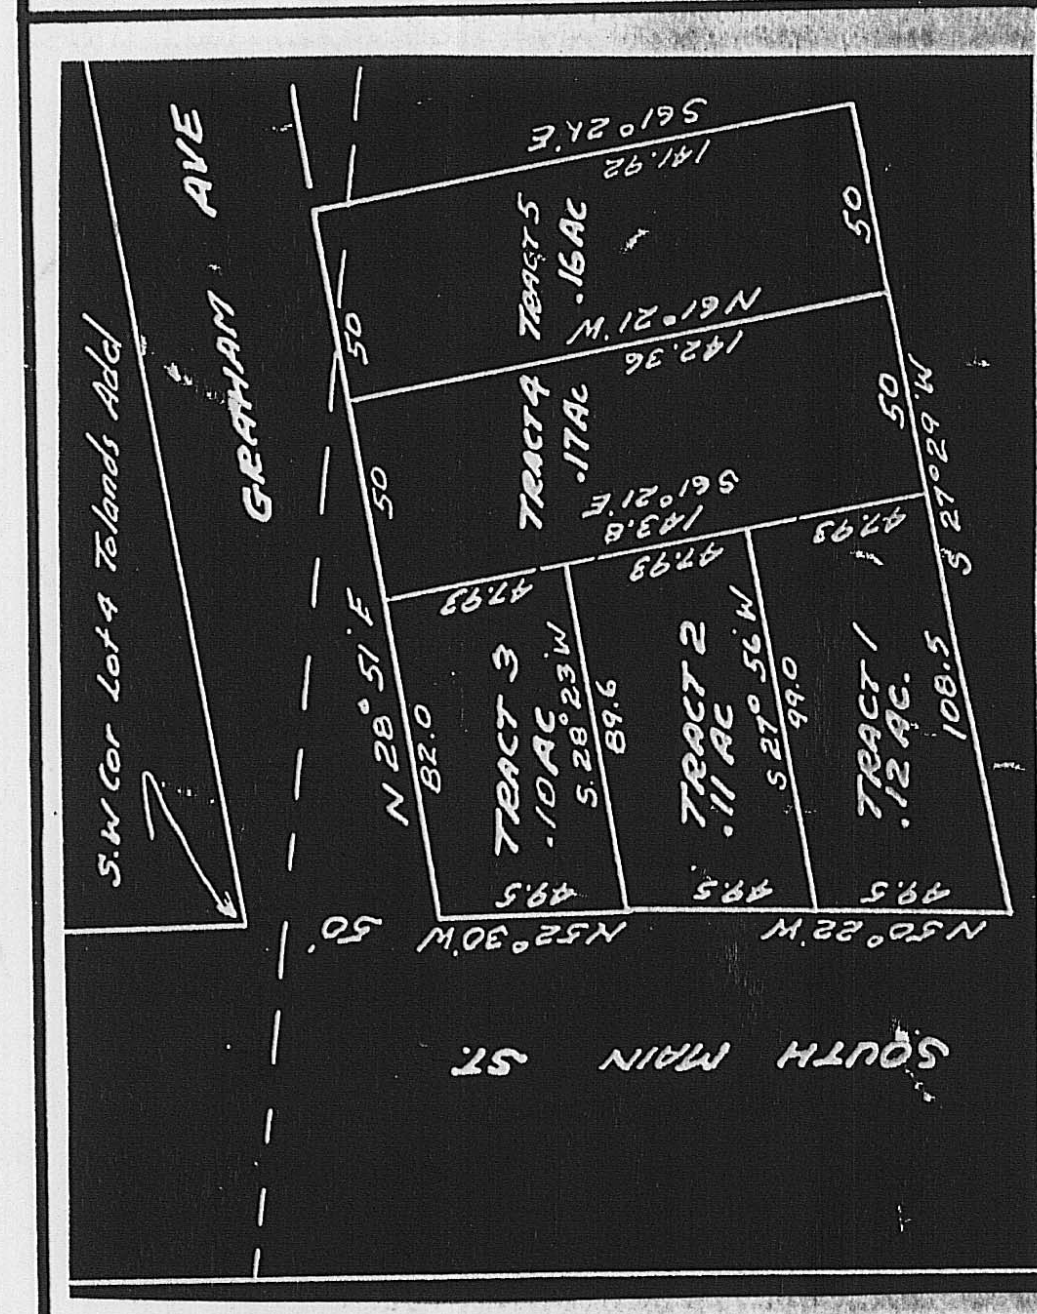 S.W Cor Lot 4 Tolands Add
GRAHAM AVE
S 61° 21' E
141.92
TRACT 5
.16 AC
50
50
N 61° 21' W
142.36
TRACT 4
.17 AC
50
50
S 61° 21' E
143.8
47.93
47.93
47.93
N 28° 51' E
82.0
TRACT 3
.10 AC
S. 28° 23' W
89.6
TRACT 2
.11 AC
S 27° 56' W
99.0
TRACT 1
.12 AC.
108.5
S 27° 29' W
49.5
49.5
49.5
50'
N 52° 30' W
N 50° 22' W
SOUTH MAIN ST.